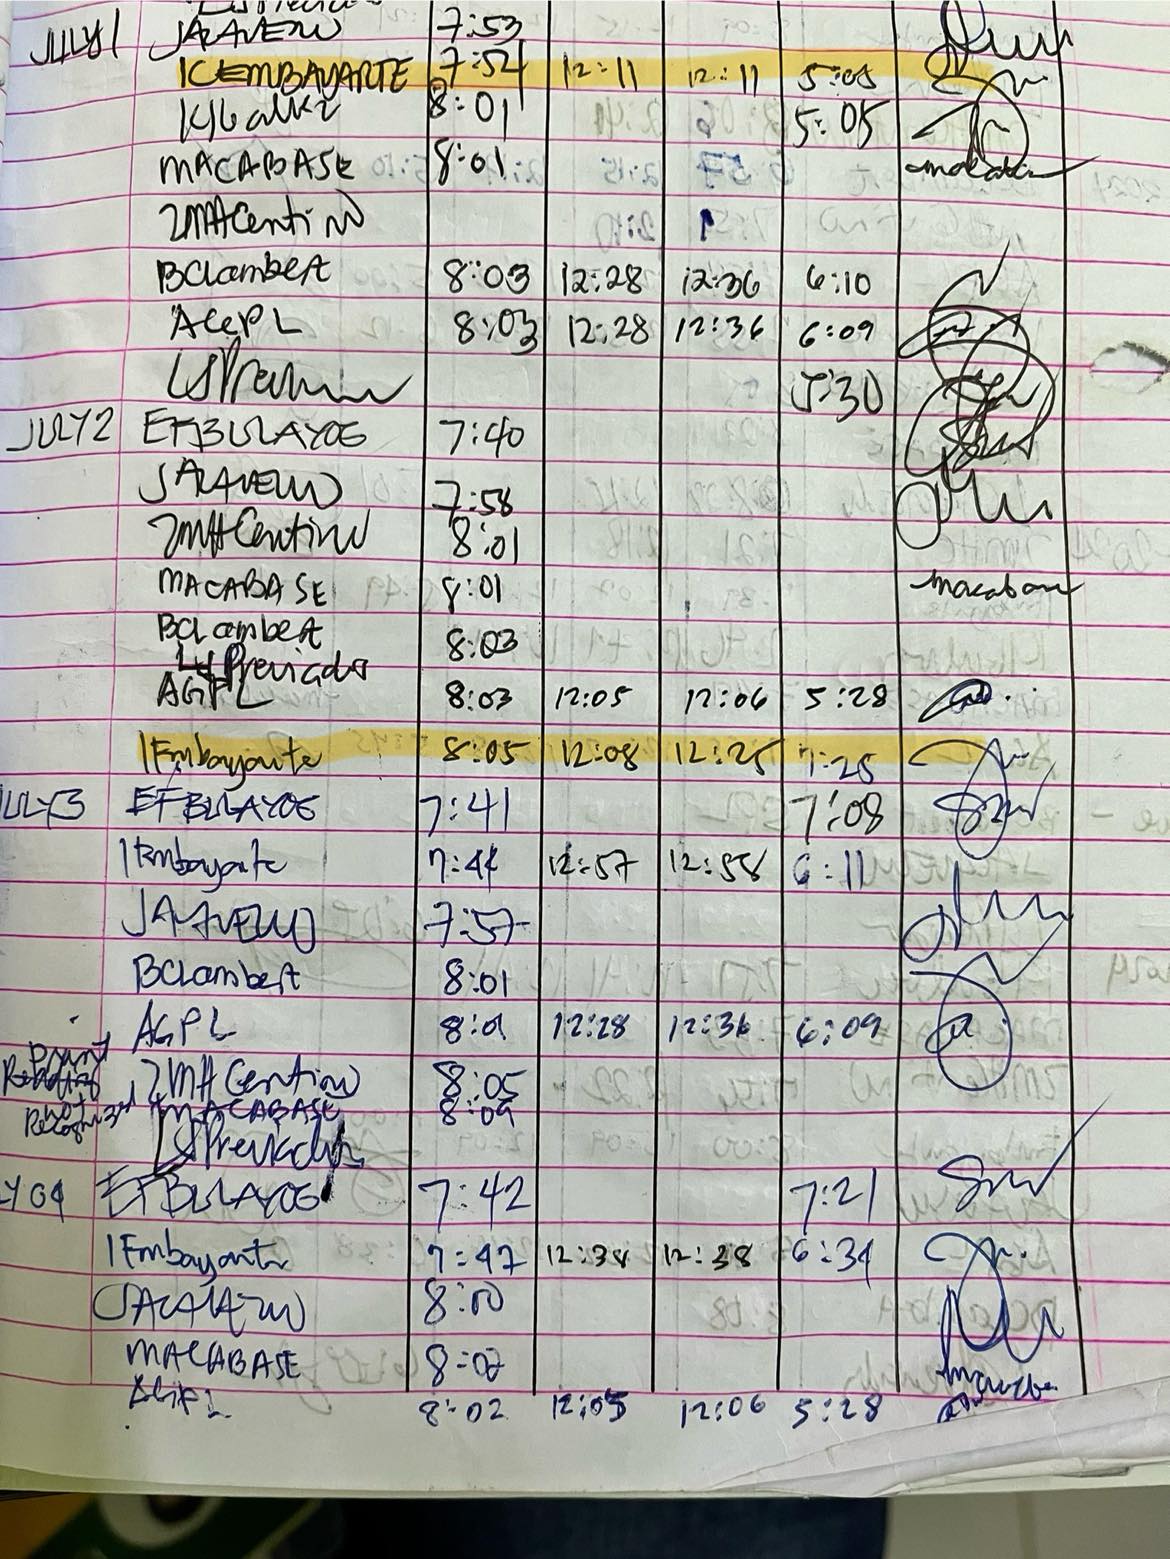 JULY 1 JALAVEZO 7:53
ICEMBAYARTE 7:54 12:11 12:11 5:05
8:01 5:05
MACABASE 8:01 macabase
JMACentino
BClambert 8:03 12:28 12:36 6:10
AGPL 8:03 12:28 12:36 6:09
5:30
JULY 2 EFBULAYOG 7:40
7:58
JMACentino 8:01
MACABASE 8:01 macabase
BClambert 8:03
LSPreviado
AGPL 8:03 12:05 12:06 5:28
IEmbayarte 8:05 12:08 12:25 7:25
JULY3 EFBULAYOG 7:41 7:08
IEmbayarte 7:44 12:57 12:58 6:11
7:57
BClambert 8:01
AGPL 8:01 12:28 12:36 6:09
JMACentino 8:05
not Recognized MACABASE 8:09
LSPreviado
LY 04 EFBULAYOG 7:42 7:21
IEmbayarte 7:47 12:38 12:38 6:34
8:00
MACABASE 8:02
AGPL 8:02 12:05 12:06 5:28